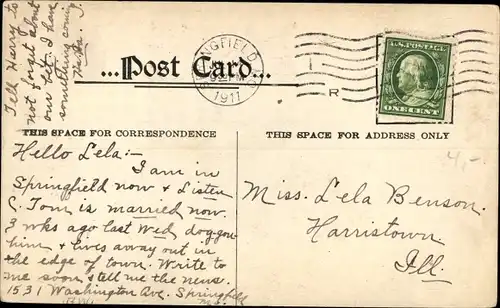 Tell Harry to
not forget about
our bet. I have
something coming
...Post Card...
SPRINGFIELD
1911
R
U.S. POSTAGE
ONE CENT
THIS SPACE FOR CORRESPONDENCE
THIS SPACE FOR ADDRESS ONLY
4,-
Hello Lela:-
I am in
Springfield now & Listen
C. Tom is married now.
3 wks ago last Wed. doggon
him & lives away out in
the edge of town. Write to
me soon & tell me the news.
1531 Washington Ave. Springfield
Miss. Lela Benson.
Harristown
Ill.